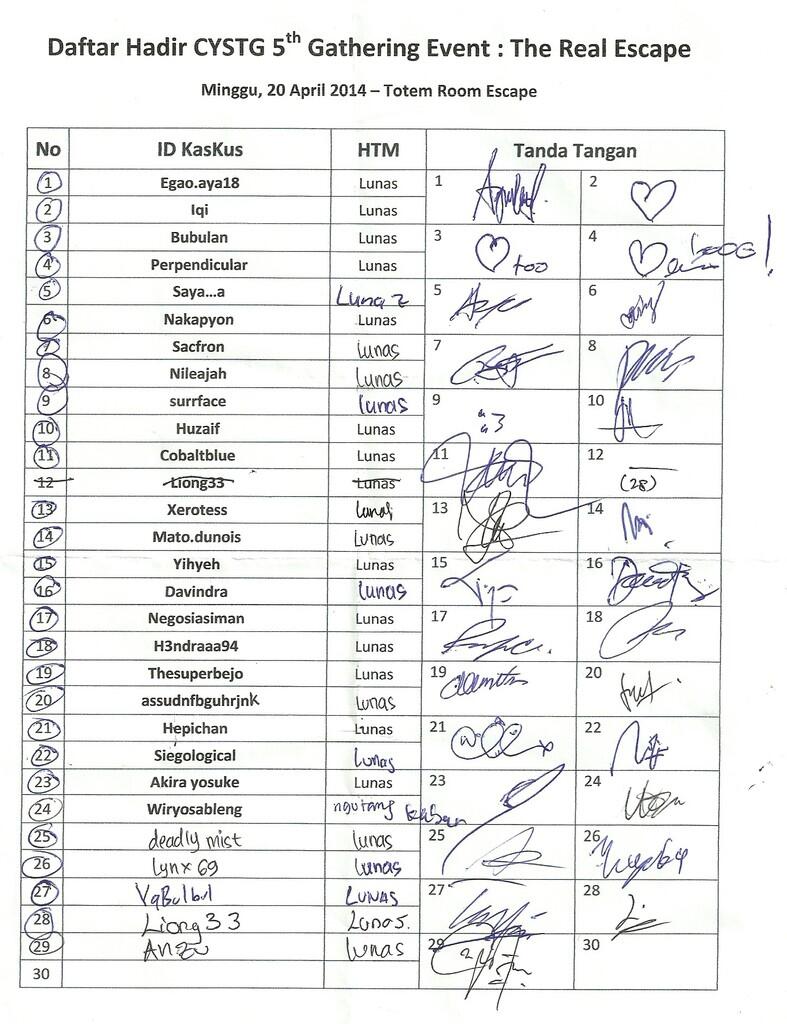 Daftar Hadir CYSTG 5th Gathering Event : The Real Escape
Minggu, 20 April 2014 – Totem Room Escape
No ID KasKus HTM Tanda Tangan
1 Egao.aya18 Lunas 1 2
2 Iqi Lunas
3 Bubulan Lunas 3 too 4
4 Perpendicular Lunas
5 Saya...a Lunaz 5 6
6 Nakapyon Lunas
7 Sacfron lunas 7 8
8 Nileajah lunas
9 surrface lunas 9 10
10 Huzaif Lunas
11 Cobaltblue Lunas 11 12
12 Liong33 Lunas (28)
13 Xerotess lunas 13 14
14 Mato.dunois Lunas
15 Yihyeh Lunas 15 16
16 Davindra lunas
17 Negosiasiman Lunas 17 18
18 H3ndraaa94 Lunas
19 Thesuperbejo Lunas 19 20
20 assudnfbguhrjnk lunas
21 Hepichan Lunas 21 22
22 Siegological lunas
23 Akira yosuke Lunas 23 24
24 Wiryosableng ngutang
25 deadly mist lunas 25 26
26 lynx 69 lunas
27 VqBulbul LUNAS 27 28
28 Liong 33 Lunas.
29 Anzu lunas 29 30
30